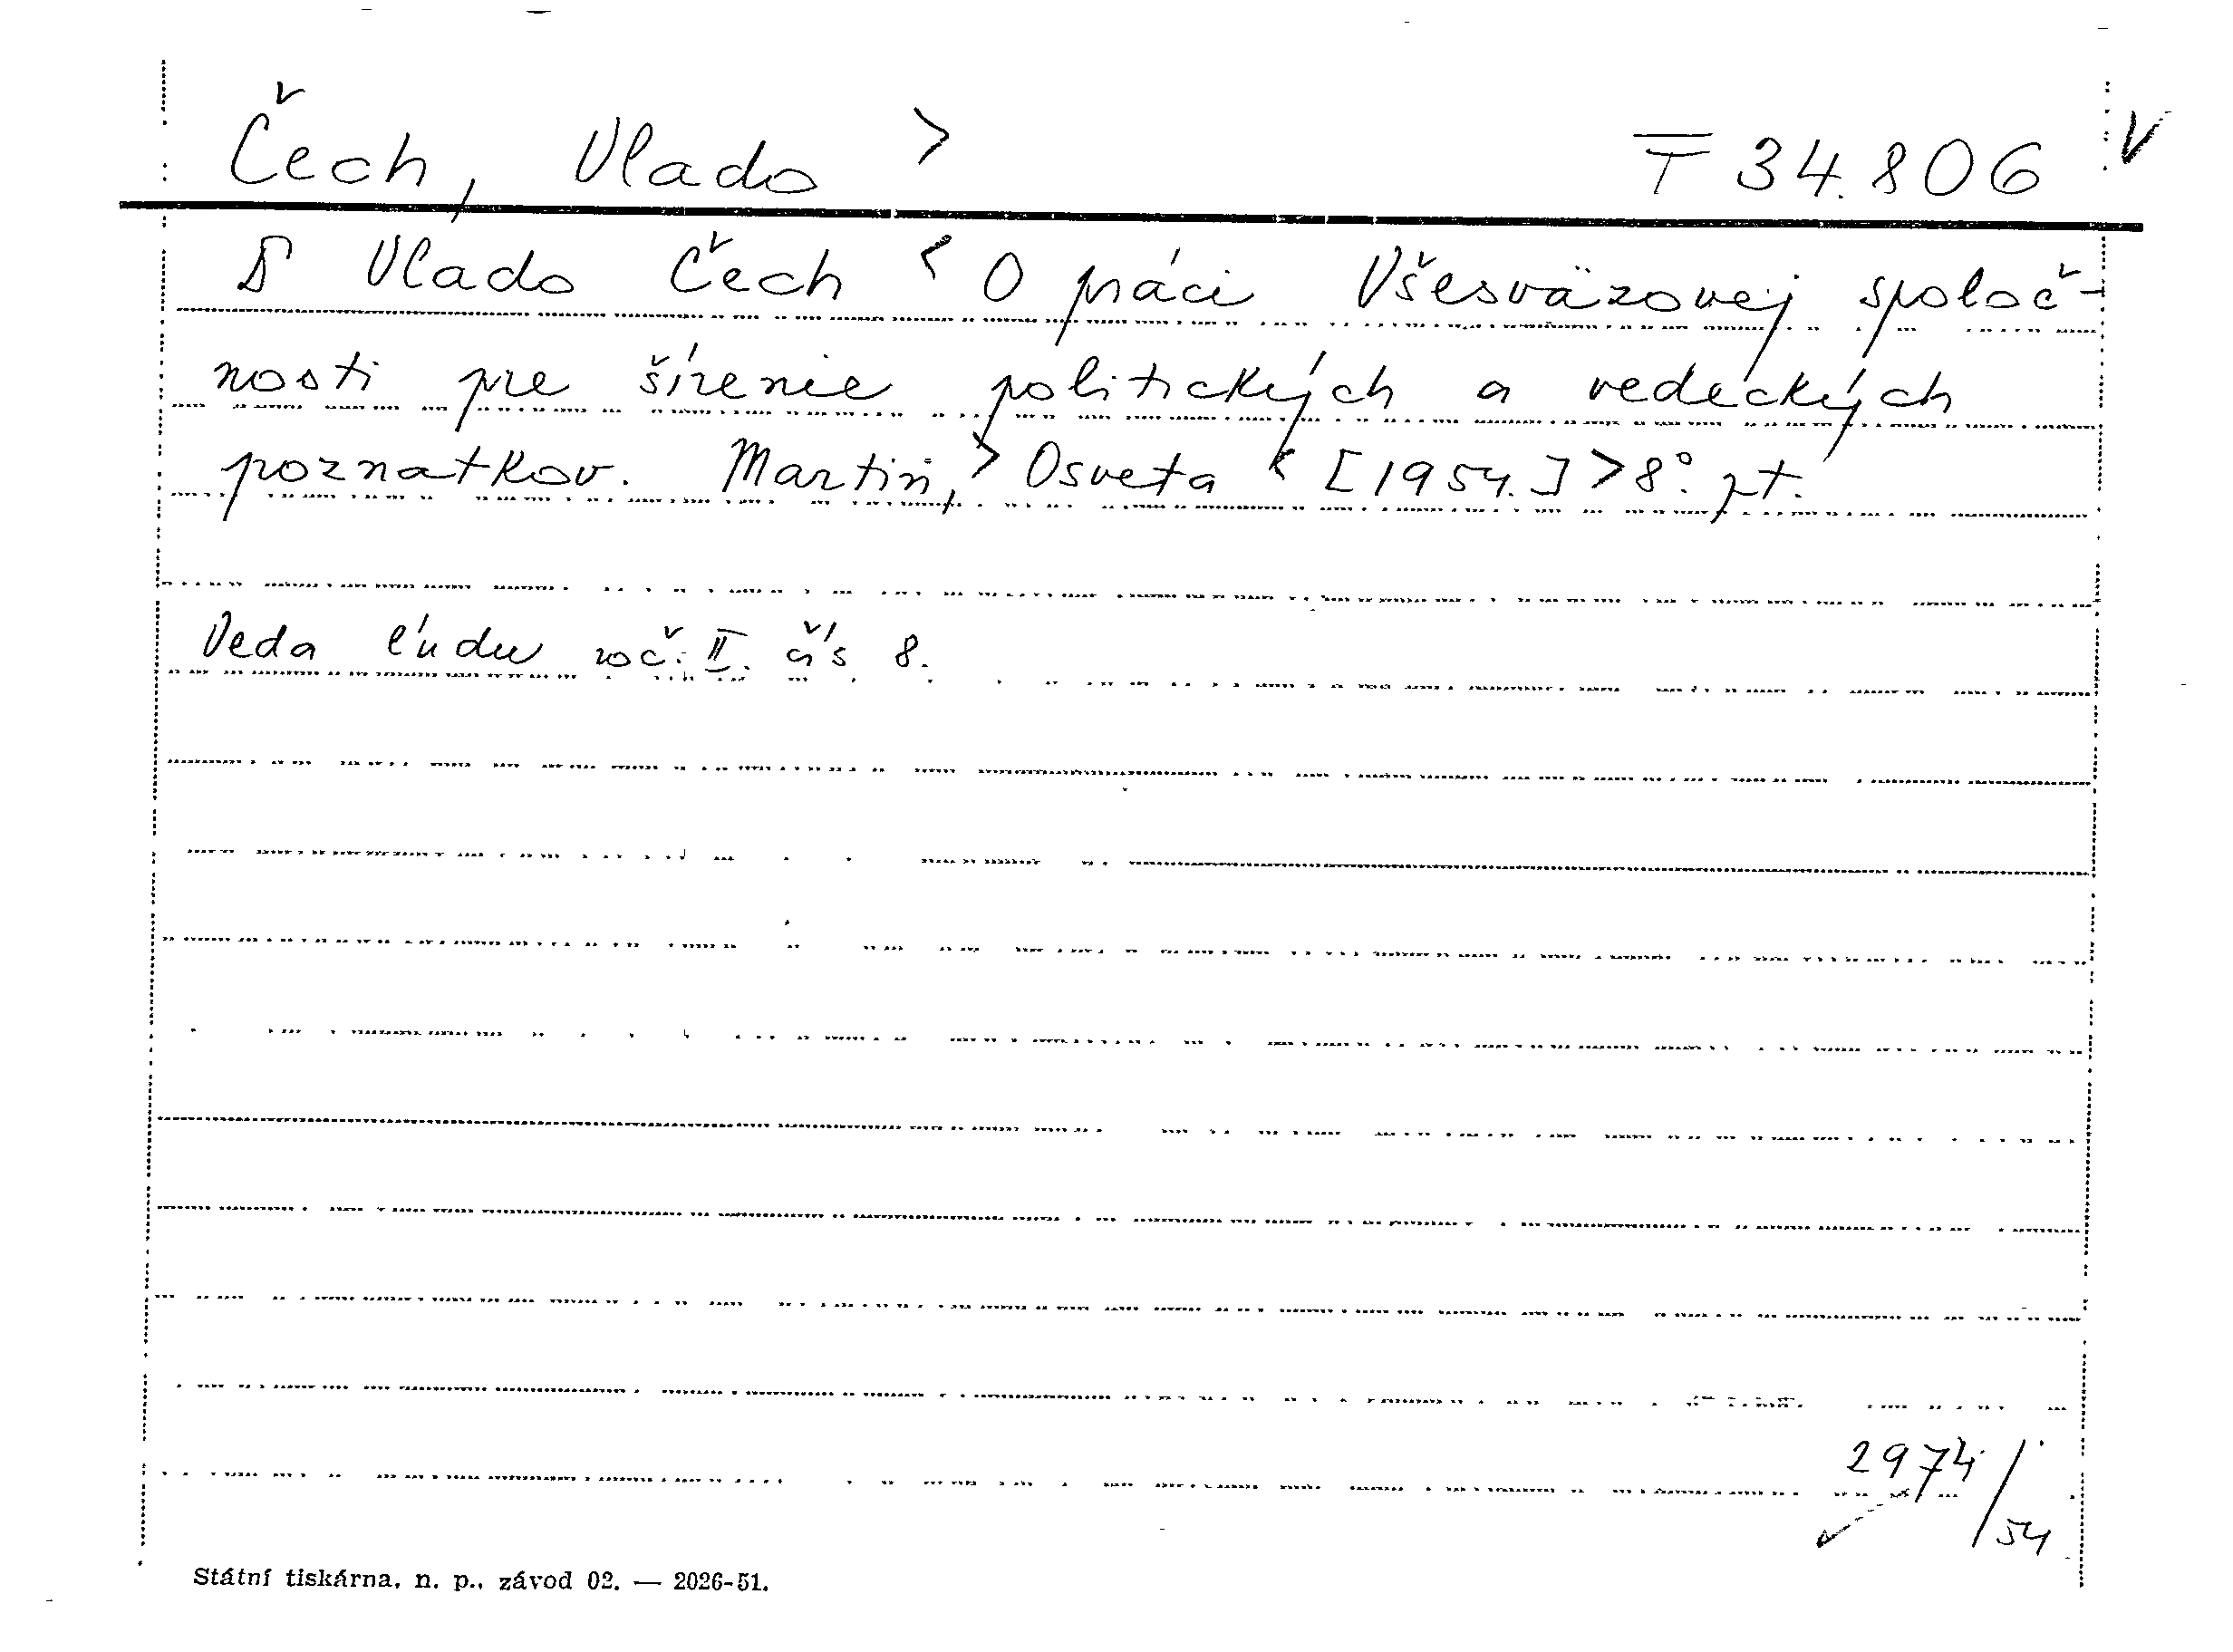 Čech, Vlado > T 34.806 V
Vlado Čech < O práci Všesväzovej spoloč-
nosti pre šírenie politických a vedeckých
poznatkov. Martin, > Osveta < [1954.] > 8°. pt.
Veda ľudu roč. II. čís 8.
2974/54
Státní tiskárna, n. p., závod 02. — 2026-51.